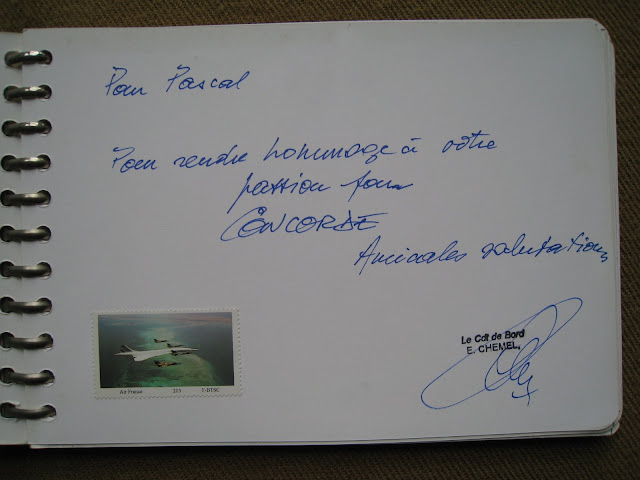 Pour Pascal
Pour rendre hommage à votre
passion pour
CONCORDE
Amicales salutations
Le Cdt de Bord
E. CHEMEL.
Air France 205 F-BTSC